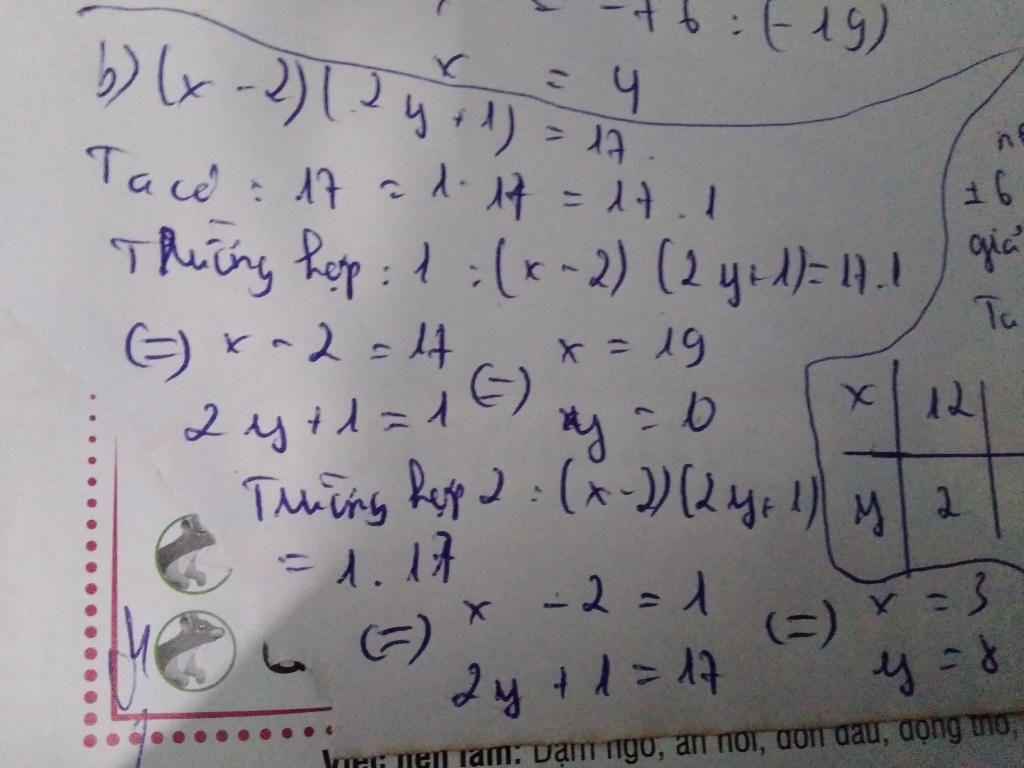 = -76 : (-19)
x = 4
b) (x - 2)(2y + 1) = 17.
Ta có : 17 = 1. 17 = 17 . 1
Trường hợp : 1 : (x - 2) (2y + 1) = 17.1
(=) x - 2 = 17 (=) x = 19
2y + 1 = 1 y = 0
Trường hợp 2 : (x - 2)(2y + 1)
= 1. 17
(=) x - 2 = 1 (=) x = 3
2y + 1 = 17 y = 8
±6
giá
Ta
x 12
y 2
Việc nên làm: Dạm ngõ, ăn hỏi, đón dâu, động thổ,